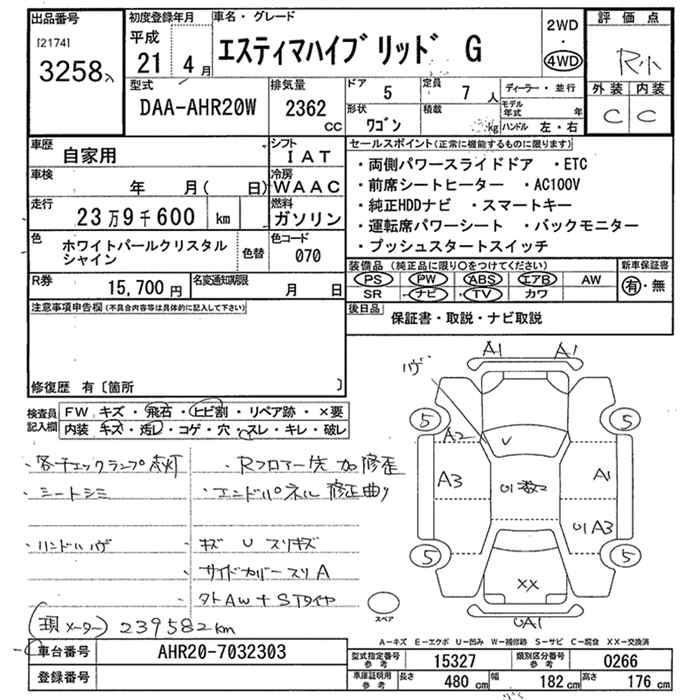 出品番号
[2174]
3258
初度登録年月
平成
21 4 月
車名・グレード
エスティマハイブリッド G
2WD
・
4WD
評価点
R小
外装 内装
C C
型式
DAA-AHR20W
排気量
2362
CC
ドア
5
定員
7 人
形状
ワゴン
積載
kg
ディーラー・並行
モデル年式 年
ハンドル 左・右
車歴
自家用
シフト
IAT
車検
年 月( 日)
冷房
WAAC
走行
23万9千600 km
燃料
ガソリン
色
ホワイトパールクリスタル
シャイン
色替
色コード
070
R券
15,700 円
名変通知期限
月 日
注意事項申告欄(不具合内容等は具体的に記入して下さい)
修復歴 有〔箇所 〕
セールスポイント(正常に機能するものに限ります)
・両側パワースライドドア ・ETC
・前席シートヒーター ・AC100V
・純正HDDナビ ・スマートキー
・運転席パワーシート ・バックモニター
・プッシュスタートスイッチ
装備品(純正品に限り○をつけてください)
PS PW ABS エアB AW
SR ナビ TV カワ
新車保証書
有・無
後日品
保証書・取説・ナビ取説
検査員
記入欄
FW キズ・飛石・ヒビ割・リペア跡・×要
内装 キズ・汚レ・コゲ・穴・スレ・キレ・破レ
・各チェックランプ点灯
・シートシミ
・リンドルハゲ
・Rフロアー先 加修歪
・エンドパネル 修正曲り
・キズ U スリキズ
サイドカバースリA
タトAW+STタイヤ
(現メーター) 239582km
A1 A1
5 5
A2
U
A3
A1
A3
5 5
XX
スペア
A-キズ E-エクボ U-凹み W-補修跡 S-サビ C-腐食 XX-交換済
車台番号
AHR20-7032303
登録番号
型式指定番号
参考
15327
類別区分番号
参考
0266
車庫証明用
参考
長さ
480 cm
幅
182 cm
高さ
176 cm